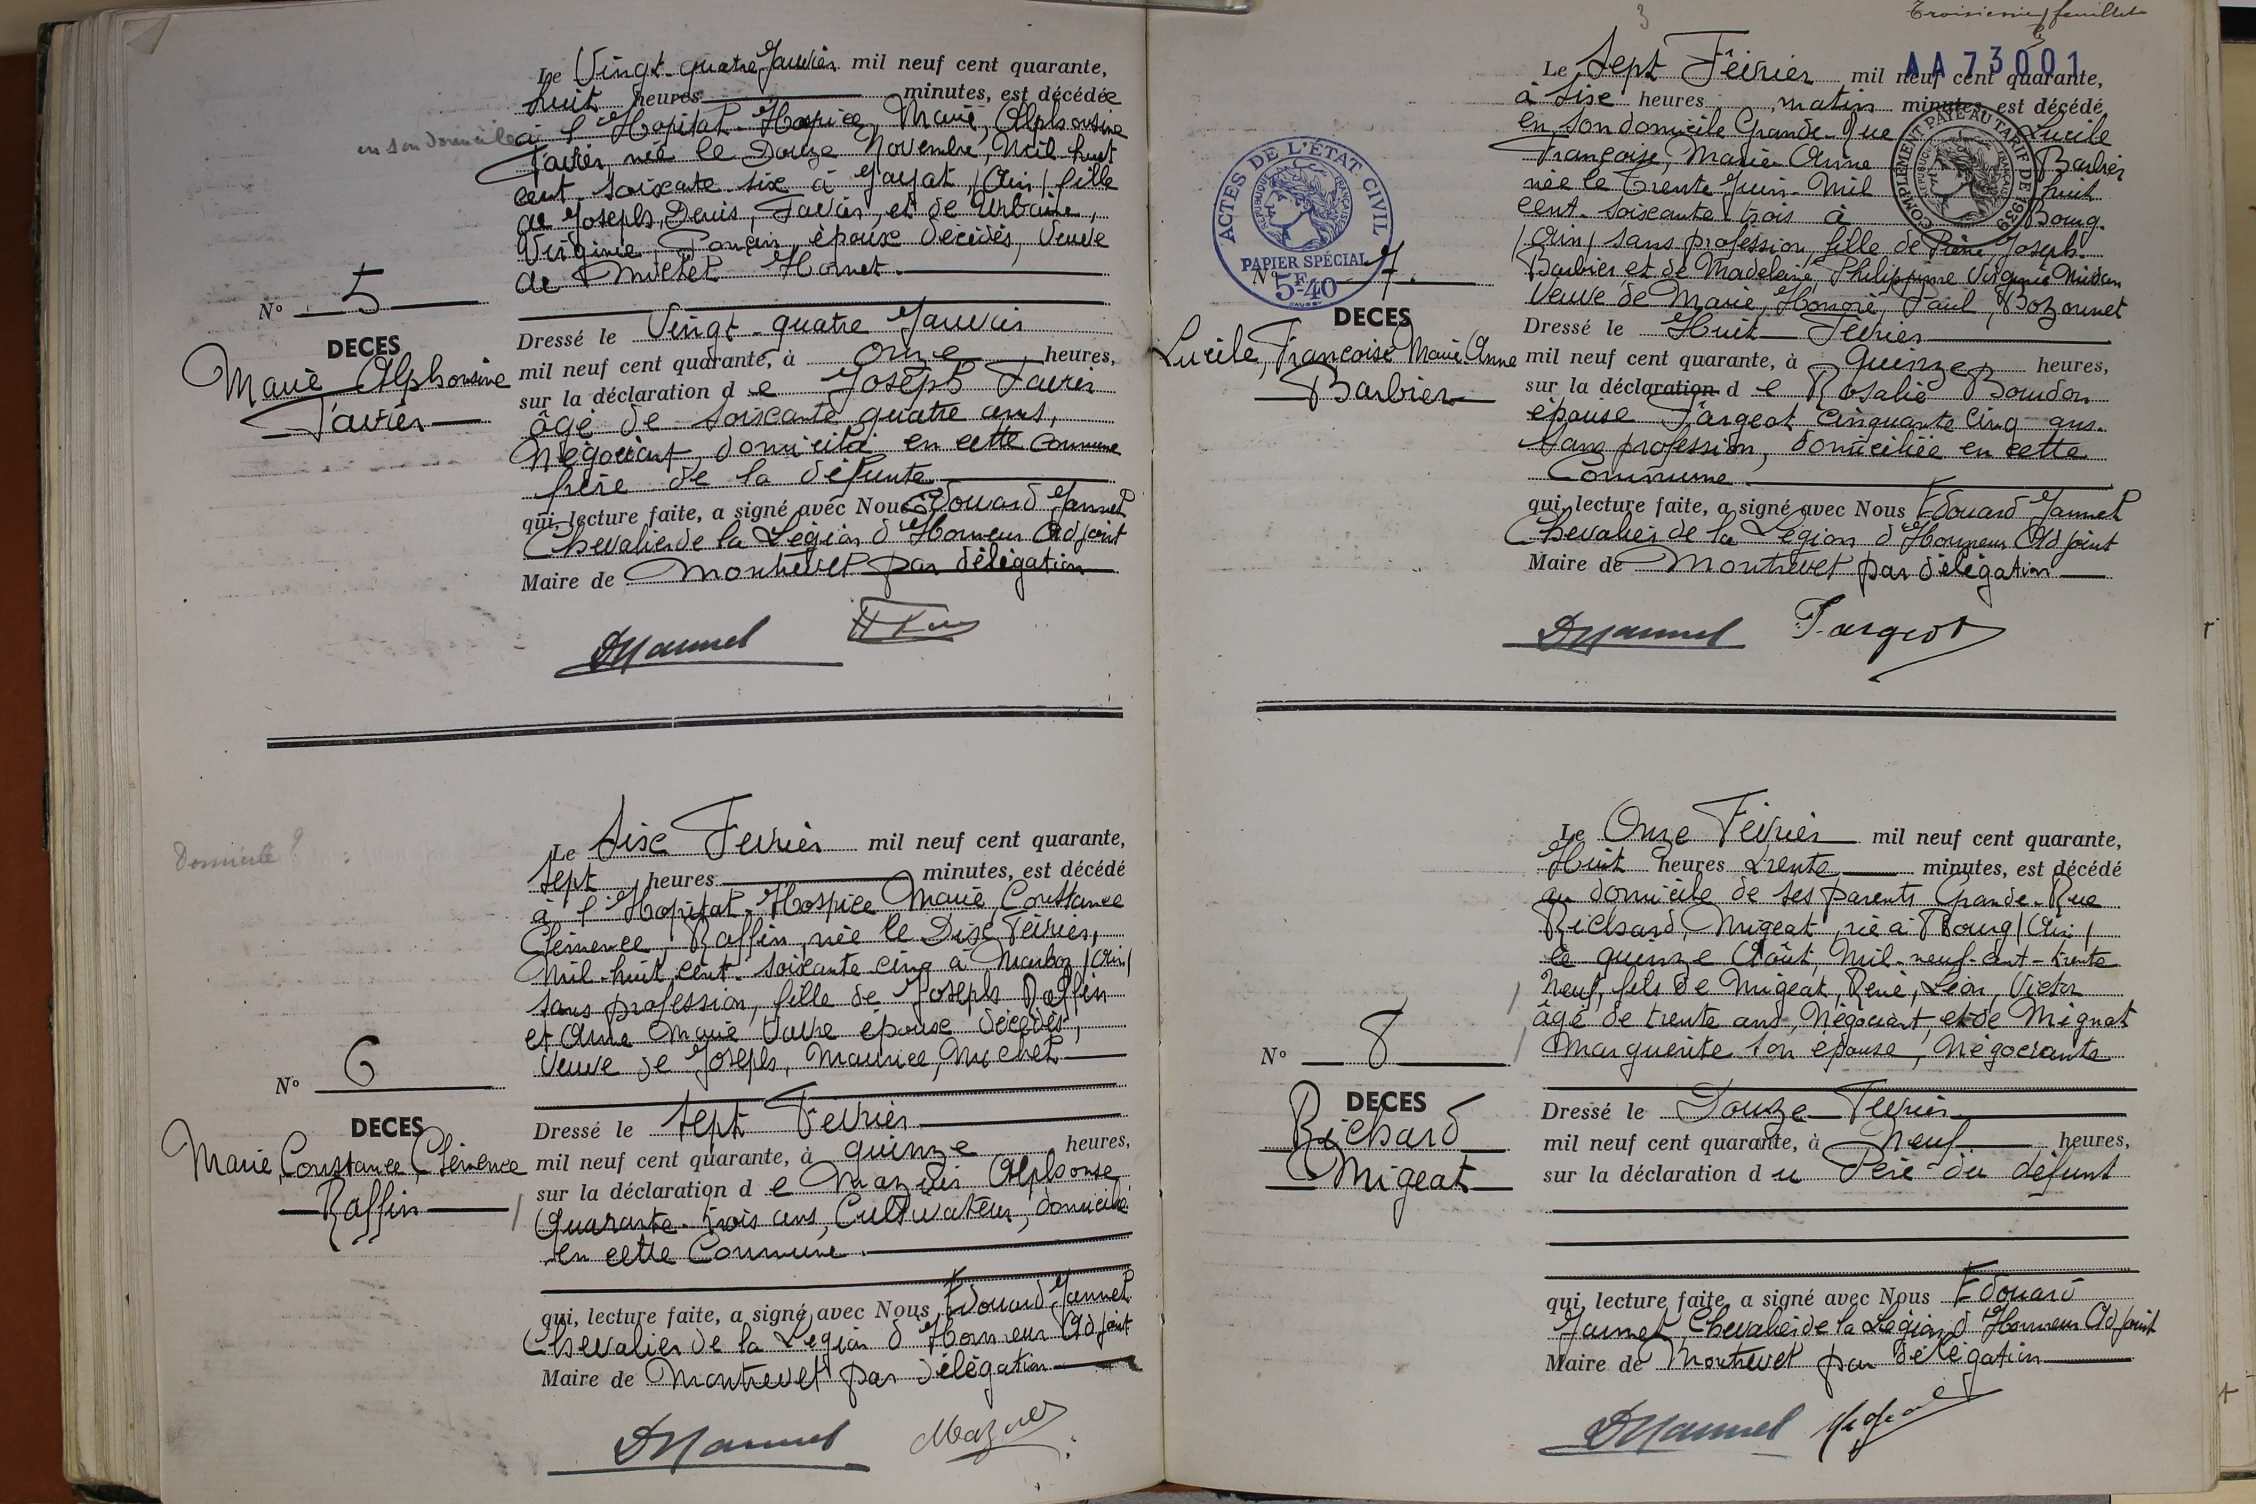 Le Vingt-quatre Janvier mil neuf cent quarante,
huit heures minutes, est décédée
en son domicile
à l'Hopital-Hospice, Marie, Alphonsine
Favier, née le Douze Novembre, Mil huit
cent soixante six à Jayat, (Ain) fille
de Joseph, Denis, Favier, et de Urbaine,
Virginie, Poncin, époux décédés, Veuve
de Michel Hornet.
N° 5
DECES
Marie Alphonsine
Favier
Dressé le Vingt-quatre Janvier
mil neuf cent quarante, à onze heures,
sur la déclaration d e Joseph Favier
âgé de soixante quatre ans,
Négociant, domicilié en cette commune
frère de la défunte
qui, lecture faite, a signé avec Nous Edouard Jannet
Chevalier de la Légion d'Honneur Adjoint
Maire de Montrevel par délégation
Domicile ?
Le Six Fevrier mil neuf cent quarante,
sept heures minutes, est décédé
à l'Hopital-Hospice Marie, Constance
Clémence, Raffin, née le Dix Février,
Mil-huit cent-soixante cinq à Marboz (Ain)
sans profession, fille de Joseph Raffin
et Anne Marie époux décédés,
Veuve de Joseph, Maurice, Michel
N° 6
DECES
Marie, Constance, Clémence
Raffin
Dressé le Sept Fevrier
mil neuf cent quarante, à quinze heures,
sur la déclaration d e Mazuir Alphonse
Quarante-trois ans, Cultivateur, domicilié
en cette Commune.
qui, lecture faite, a signé avec Nous Edouard Jannet
Chevalier de la Légion d'Honneur Adjoint
Maire de Montrevel par délégation
3
Troisième feuillet
AA 73001
Le Sept Février mil neuf cent quarante,
à Six heures matin minutes, est décédé
en son domicile Grande-Rue Lucile
Françoise, Marie-Anne Barbier
née le Trente Juin-Mil huit
cent-soixante trois à Bourg.
(Ain) sans profession, fille de Pierre, Joseph-
Barbier, et de Madeleine, Philippine Virginie
Veuve de Marie, Honoré, Paul, Bozonnet
COMPLEMENT PAYÉ AU TARIF DE 1939
REPUBLIQUE FRANÇAISE
ACTES DE L'ÉTAT CIVIL
REPUBLIQUE FRANÇAISE
PAPIER SPÉCIAL
5F-40
N° 7.
DECES
Lucile, Françoise Marie Anne
Barbier
Dressé le Huit Février
mil neuf cent quarante, à quinze heures,
sur la déclaration d e Rosalie Boudon
épouse Fargeot Cinquante Cinq ans.
Sans profession, domiciliée en cette
Commune
qui, lecture faite, a signé avec Nous Edouard Jannet
Chevalier de la Légion d'Honneur Adjoint
Maire de Montrevel par délégation
Fargeot
Le Onze Février mil neuf cent quarante,
Huit heures trente minutes, est décédé
au domicile de ses parents Grande-Rue
Richard, Migeat, né à Bourg (Ain)
le quinze Août, Mil-neuf-cent-trente
Neuf, fils de Migeat, René, Léon, Victor
âgé de trente ans, Négociant, et de Mignot
Marguerite son épouse, Négociante
N° 8
DECES
Richard
Migeat
Dressé le Douze Fevrier
mil neuf cent quarante, à Neuf heures,
sur la déclaration d u Père du défunt
qui, lecture faite, a signé avec Nous Edouard
Jannet, Chevalier de la Légion d'Honneur Adjoint
Maire de Montrevel par délégation